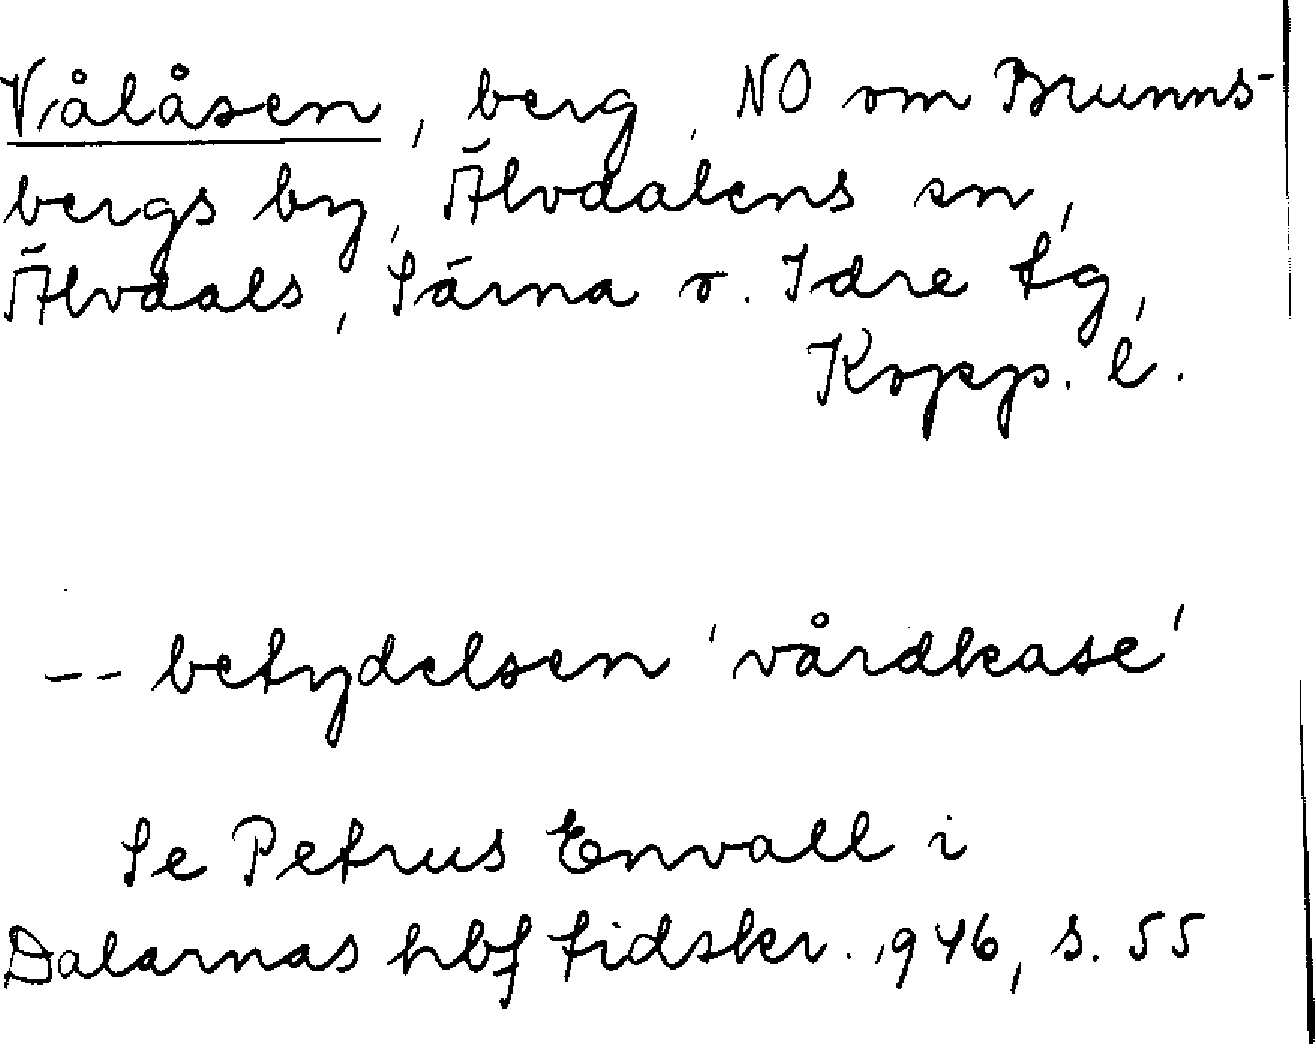 Vålåsen, berg, NO om Brunns-
bergs by, Älvdalens sn,
Älvdals, Särna o. Idre tg,
Kopp. l.
-- betydelsen 'vårdkase'
Se Petrus Envall i
Dalarnas hbf tidskr. 1946, s. 55